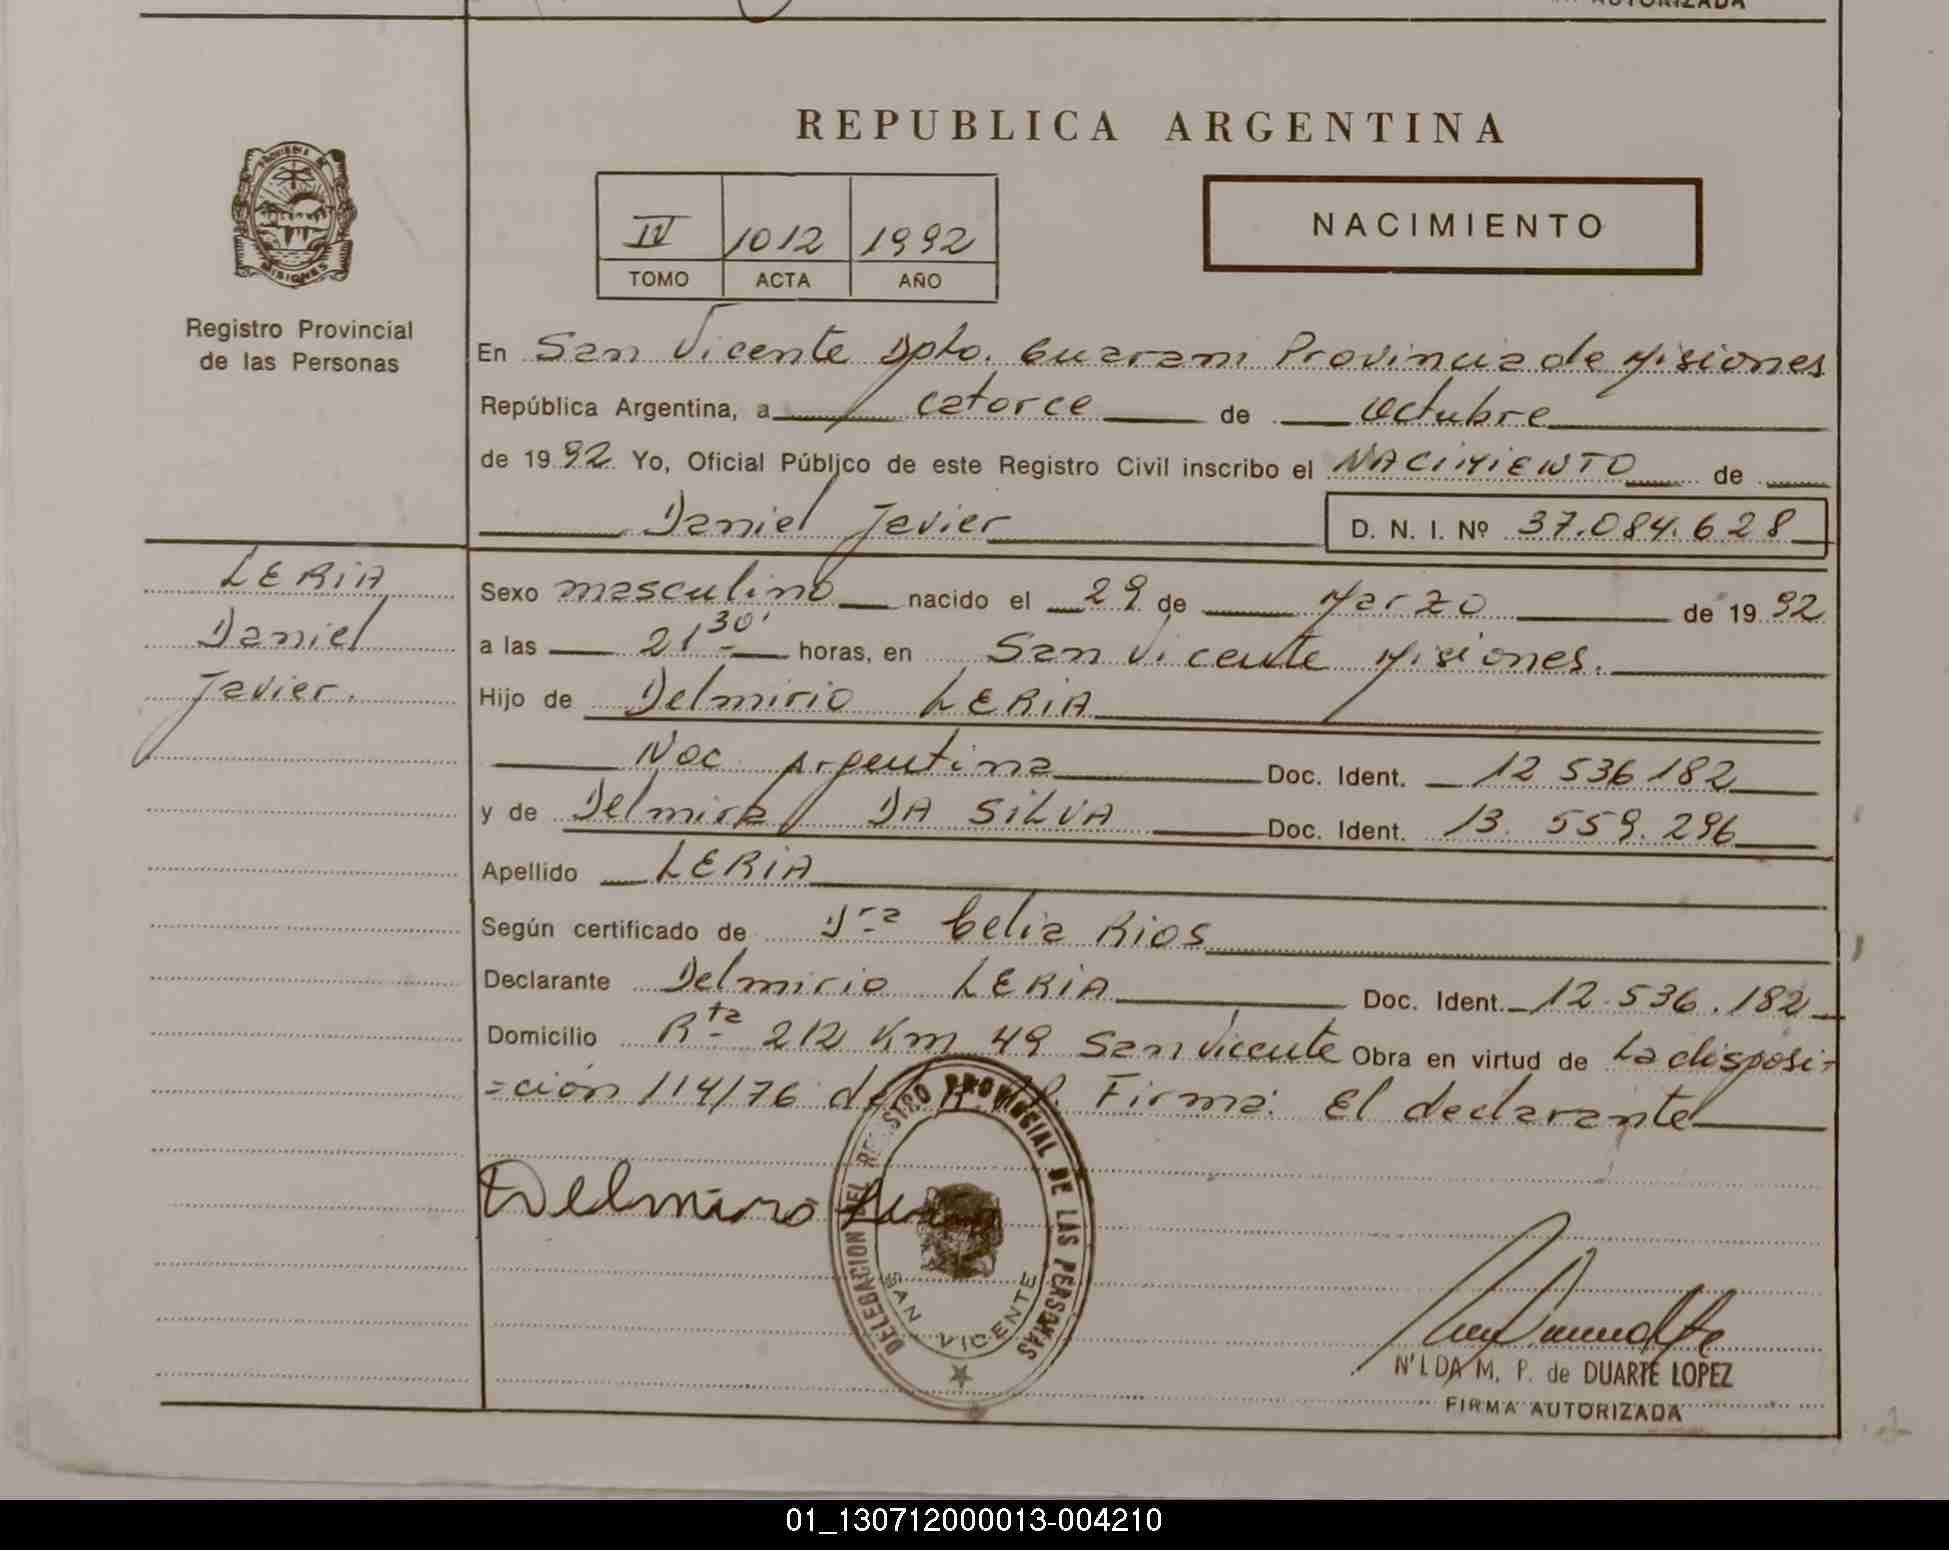 AUTORIZADA
REPUBLICA ARGENTINA
PROVINCIA DE
MISIONES
Registro Provincial
de las Personas
IV 1012 1992
TOMO ACTA AÑO
NACIMIENTO
En San Vicente Dpto. Guarani Provincia de Misiones
República Argentina, a catorce de octubre
de 1992 Yo, Oficial Público de este Registro Civil inscribo el NACIMIENTO de
Daniel Javier D. N. I. Nº 37.084.628
LERIA
Daniel
Javier.
Sexo masculino nacido el 29 de Marzo de 1992
a las 21 30' horas, en San Vicente Misiones.
Hijo de Delmirio LERIA
Nac. Argentina Doc. Ident. 12 536 182
y de Delmira DA SILVA Doc. Ident. 13. 559. 296
Apellido LERIA
Según certificado de Dra Celia Rios
Declarante Delmirio LERIA Doc. Ident. 12.536.182
Domicilio Rta 212 Km 49 San Vicente Obra en virtud de La disposi-
=ción 114/76 Firma: El declarante
Delmiro Leria
DELEGACION DEL REGISTRO PROVINCIAL DE LAS PERSONAS
SAN VICENTE
NILDA M. P. de DUARTE LOPEZ
FIRMA AUTORIZADA
01_130712000013-004210